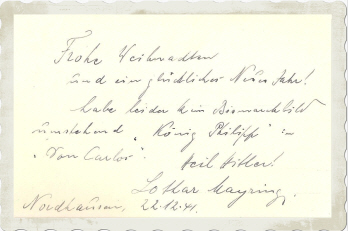 Frohe Weihnachten
und ein glückliches Neues Jahr!
habe leider kein Bismarckbild
umstehend "König Philipp" in
"Don Carlos".
Heil Hitler!
Lothar Mayring,
Nordhausen, 22.12.41.